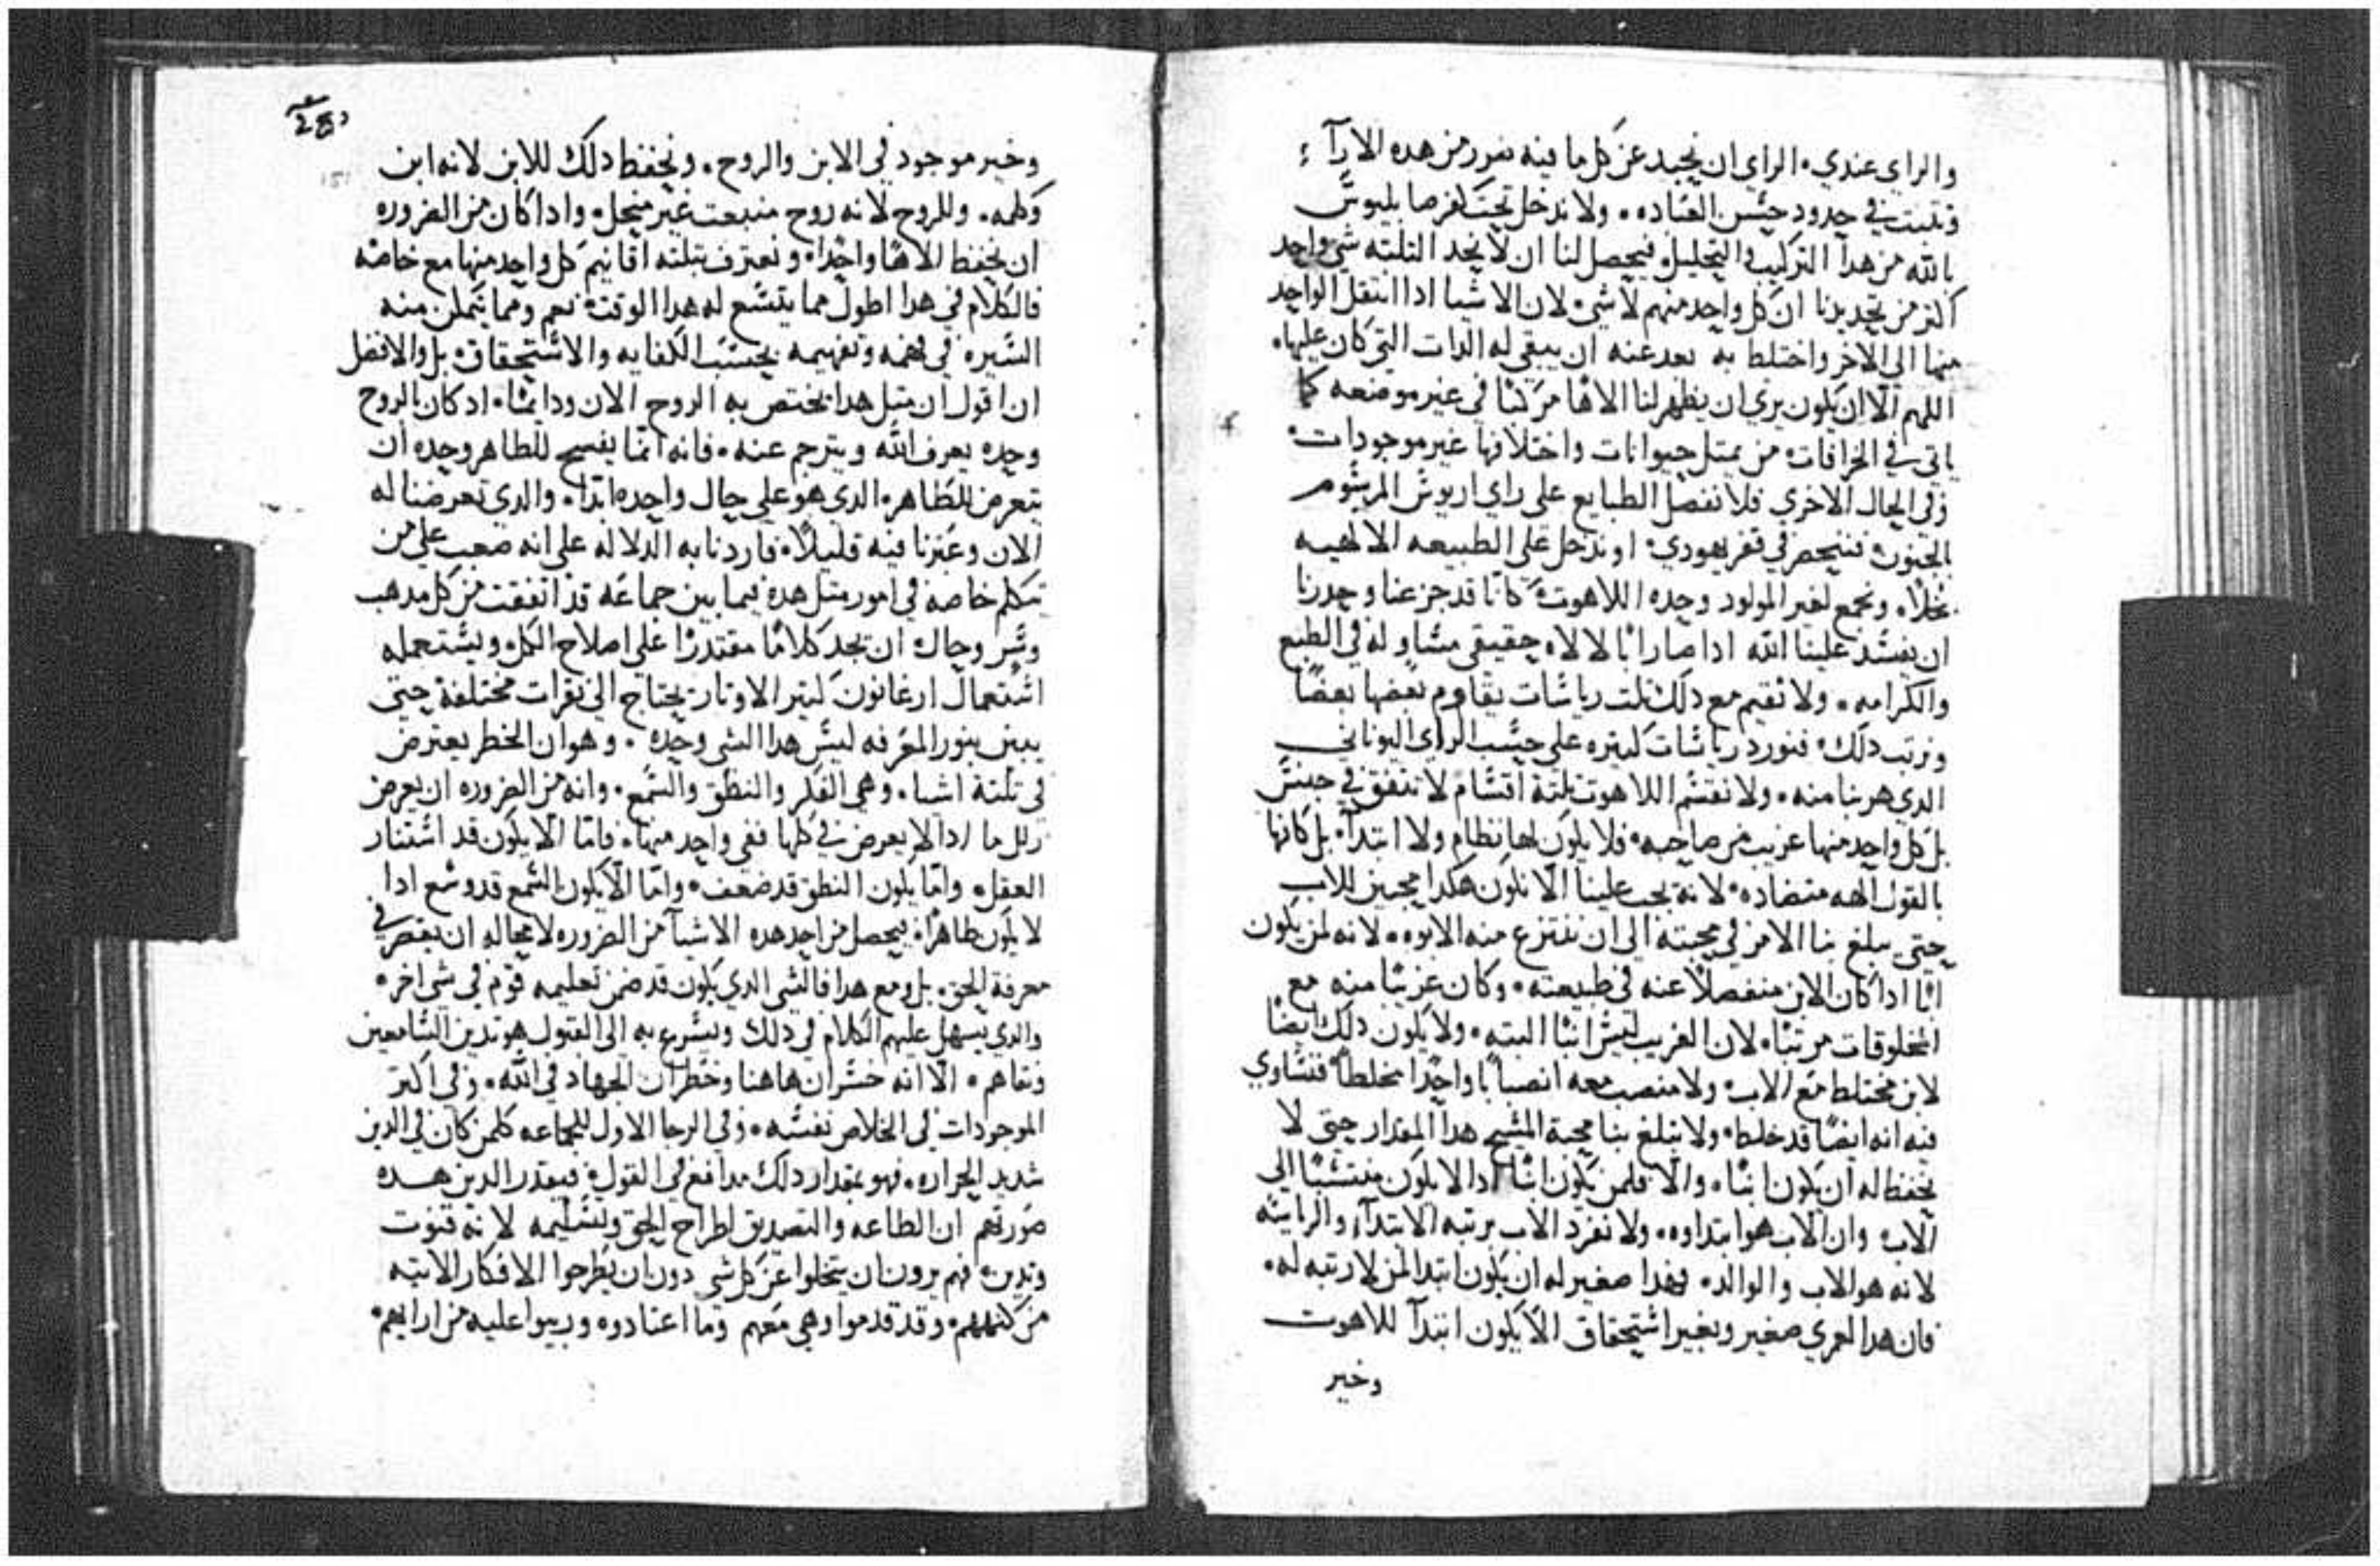 والراي عندي. الراي ان نحيد عن كل ما فيه نفور من هده الارآء
ونتبت في حدود حسن العباده. ولا ندخل تحت كفر صابليوس
بالله من هدا التركيب والتحليل. فيحصل لنا ان لا نحد التلته شي واحد
اكتر من تحديدنا ان كل واحد منهم لا شي. لان الاشيا ادا انتقل الواحد
منها الي الاخر واختلط به بعد عنه ان يبقي له الدات التي كان عليها.
اللهم الا ان يكون يري ان يظهر لنا الاها مركبا في غير موضعه كما
ياتي في الخرافات من يمتل حيوانات واختلافها غير موجودات.
وفي الحال الاخري فلا نفصل الطبايع علي راي اريوس المرسوم
بالجنون فننحصر في فقر يهودي. او ندخل علي الطبيعه الالهيه
بخلا. ونجمع لغير المولود وحده اللاهوت كانا قد جزعنا وحدرنا
ان يفسد علينا الله ادا صار ابا لالاه حقيقي مساو له في الطبع
والكرامه. ولا نقيم مع دلك تلت رياسات يقاوم بعضها بعضا
ونرتب دلك. فنورد رياسات كتيره علي حسب الراي اليوناني
الدي هربنا منه. ولا نقسم اللاهوت تلتة اقسام لا تتفق في جنس
بل كل واحد منها غريب من صاحبه. فلا يكون لها نظام ولا ابتدآ. بل كانها
بالقول الهه متضاده. لانه يجب علينا الا نكون هكدا محبين للاب
حتي يبلغ بنا الامر في محبته الي ان ننتزع منه الابوه. لانه لمن يكون
ابا ادا كان الابن منفصلا عنه في طبيعته. وكان غريبا منه مع
المخلوقات مرتبا. لان الغريب ليس ابنا البته. ولا يكون دلك ايضا
لابن مختلط مع الاب. ولا منصب معه انصبابا واحدا مخلطا فنساوي
فيه انه ايضا قد خلط. ولا تبلغ بنا محبة المسيح هدا المقدار حتي لا
نحفظ له ان يكون ابنا. والا فلمن يكون ابنا ادا لا يكون منتسبا الي
الاب وان الاب هو ابتداوه. ولا نفرد الاب برتبه الابتدآ والرياسه
لانه هو الاب والوالد. فهدا صغير له ان يكون ابتدا لمن لا رتبه له.
فان هدا لعمري صغير وبغير استحقاق الا يكون ابتدآ للاهوت
وخير
وخير موجود في الابن والروح. ونحفظ دلك للابن لانه ابن
وكلمه. وللروح لانه روح منبعت غير منحل. وادا كان من الضروره
ان يحفظ الاها واحدا. ونعترف بتلته اقانيم كل واحد منها مع خاصه
فالكلام في هدا اطول مما يتسع له هدا الوقت. نعم ومما يتمكن منه
السيره في فهمه وتفهيمه بحسب الكفايه والاستحقاق. بل والافضل
ان اقول ان متل هدا يختص به الروح الان ودايما. ادكان بالروح
وحده يعرف الله ويترجم عنه. فانه انما يفسح للطاهر وحده ان
يتعرض للطاهر. الدي هو علي حال واحده ابدا. والدي تعرضنا له
الان وعبرنا فيه قليلا. فاردنا به الدلاله علي انه صعب علي من
يتكلم خاصه في امور متل هده فيما بين جماعه قد اتفقت من كل مدهب
وسر وحال ان يجد كلاما مقتدرا علي اصلاح الكل. ويستعمله
استعمال ارغانون كتير الاوتار يحتاج الي نقرات مختلفة حتي
يبين بنور المعرفه ليس هدا الشي وحده. وهو ان الخطر يعترض
في تلتة اشيا. وهي الفكر والنطق والسمع. وانه من الضروره ان يعرض
الزلل ما ادا لا يعرض في كلها ففي واحد منها. فاما الا يكون قد استنار
العقل. واما يكون النطق قد ضعف. واما الا يكون السمع قد وسع ادا
لا يكون طاهرا. فيحصل من احد هده الاشيآ من الضروره لا محاله ان يقصر في
معرفة الحق. بل ومع هدا فالشي الدي يكون قد ضمن تعليمه قوم في شي اخر.
والدي يسهل عليهم الكلام في دلك ويسرع به الي القبول هو تدين السامعين
ونقاهم. الا انه خسران هاهنا وخطران الجهاد في الله. وفي اكتر
الموجودات في الخلاص نفسه. وفي الرجا الاول للجماعه كلمن كان في الدين
شديد الحراره. فهو بمقدار دلك مدافع في القول. فيقدر الدين هده
صورتهم ان الطاعه والتصديق اطراح الحق وتسليمه لا ته قنوت
وتدين. فهم يرون ان يتخلوا عن كل شي دون ان يطرحوا الافكار الاتيه
من كتبهم. وقد قدموا وهي معهم وما اعتادوه وربيوا عليه من ارايهم.